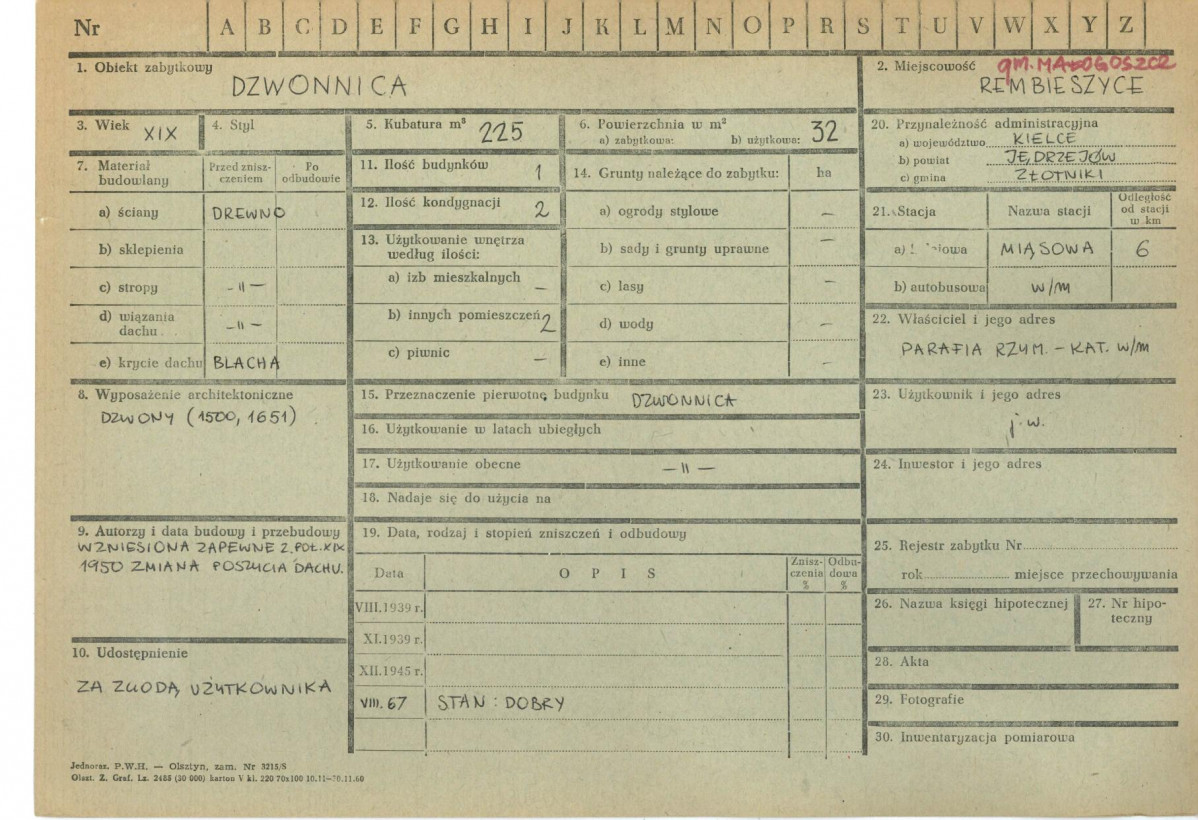 Nr A B C D E F G H I J K L M N O P R S T U V W X Y Z
1. Obiekt zabytkowy
DZWONNICA
2. Miejscowość gm. MAŁOGOSZCZ
REMBIESZYCE
3. Wiek XIX
4. Styl
5. Kubatura m³ 225
6. Powierzchnia w m²
a) zabytkowa: b) użytkowa: 32
7. Materiał budowlany
Przed zniszczeniem
Po odbudowie
a) ściany DREWNO
b) sklepienia
c) stropy -11-
d) wiązania dachu -11-
e) krycie dachu BLACHA
8. Wyposażenie architektoniczne
DZWONY (1500, 1651)
9. Autorzy i data budowy i przebudowy
WZNIESIONA ZAPEWNE 2. POŁ. XIX
1950 ZMIANA POSZYCIA DACHU.
10. Udostępnienie
ZA ZGODĄ UŻYTKOWNIKA
11. Ilość budynków 1
12. Ilość kondygnacji 2
13. Użytkowanie wnętrza
według ilości:
a) izb mieszkalnych —
b) innych pomieszczeń 2
c) piwnic —
14. Grunty należące do zabytku: ha
a) ogrody stylowe —
b) sady i grunty uprawne —
c) lasy —
d) wody —
e) inne —
15. Przeznaczenie pierwotne budynku DZWONNICA
16. Użytkowanie w latach ubiegłych
17. Użytkowanie obecne —11—
18. Nadaje się do użycia na
19. Data, rodzaj i stopień zniszczeń i odbudowy
Data
OPIS
Zniszczenia %
Odbudowa %
VIII.1939 r.
XI.1939 r.
XII.1945 r.
VIII.67 STAN: DOBRY
20. Przynależność administracyjna
a) województwo KIELCE
b) powiat JĘDRZEJÓW
c) gmina ZŁOTNIKI
21. Stacja
Nazwa stacji
Odległość od stacji w km
a) MIĄSOWA 6
b) autobusowa w/m
22. Właściciel i jego adres
PARAFIA RZYM. - KAT. w/m
23. Użytkownik i jego adres
j.w.
24. Inwestor i jego adres
25. Rejestr zabytku Nr
rok miejsce przechowywania
26. Nazwa księgi hipotecznej
27. Nr hipoteczny
28. Akta
29. Fotografie
30. Inwentaryzacja pomiarowa
Jednoraz. P.W.H. — Olsztyn, zam. Nr 3215/S
Olszt. Z. Graf. Lz. 2485 (30 000) karton V kl. 220 70x100 10.11—20.11.60